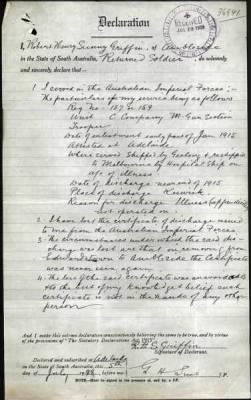 Declaration
I, Robert Henry Sunny Griffin, of Ambleside
in the State of South Australia, Returned Soldier, do solemnly
and sincerely declare that:
1 I served in the Australian Imperial Forces;— The
particulars of my service being as follows
Reg No. 157
Unit C Company M. Gun Section
Trooper
Date of enlistment early part of Jan 1915
Attested at Adelaide
Where served Shipped by Geelong & reshipped
to Melbourne by Hospital Ship on
a/c of illness
Date of discharge near end of 1915
Place of discharge Keswick
Reason for discharge Illness (appendix)
not operated on
2 I have lost the certificate of discharge issued
to me from the Australian Imperial Forces
3 The circumstances under which the said
was lost are that on removing from
Edwardstown to Ambleside the Certificate
was never seen again
4 The loss of the said certificate was
to the best of my knowledge & belief such
certificate is not in the hands of any other
person
And I make this solemn declaration conscientiously believing the same to be true, and by virtue
of the provisions of "The Statutory Declarations Act, 1915"
R H S Griffin
Signature of Declarant.
Declared and subscribed at Adelaide
in the State of South Australia, this 5th
day of July 1938, before me,
J.P.
NOTE.—MUST be signed in the presence of a J.P.